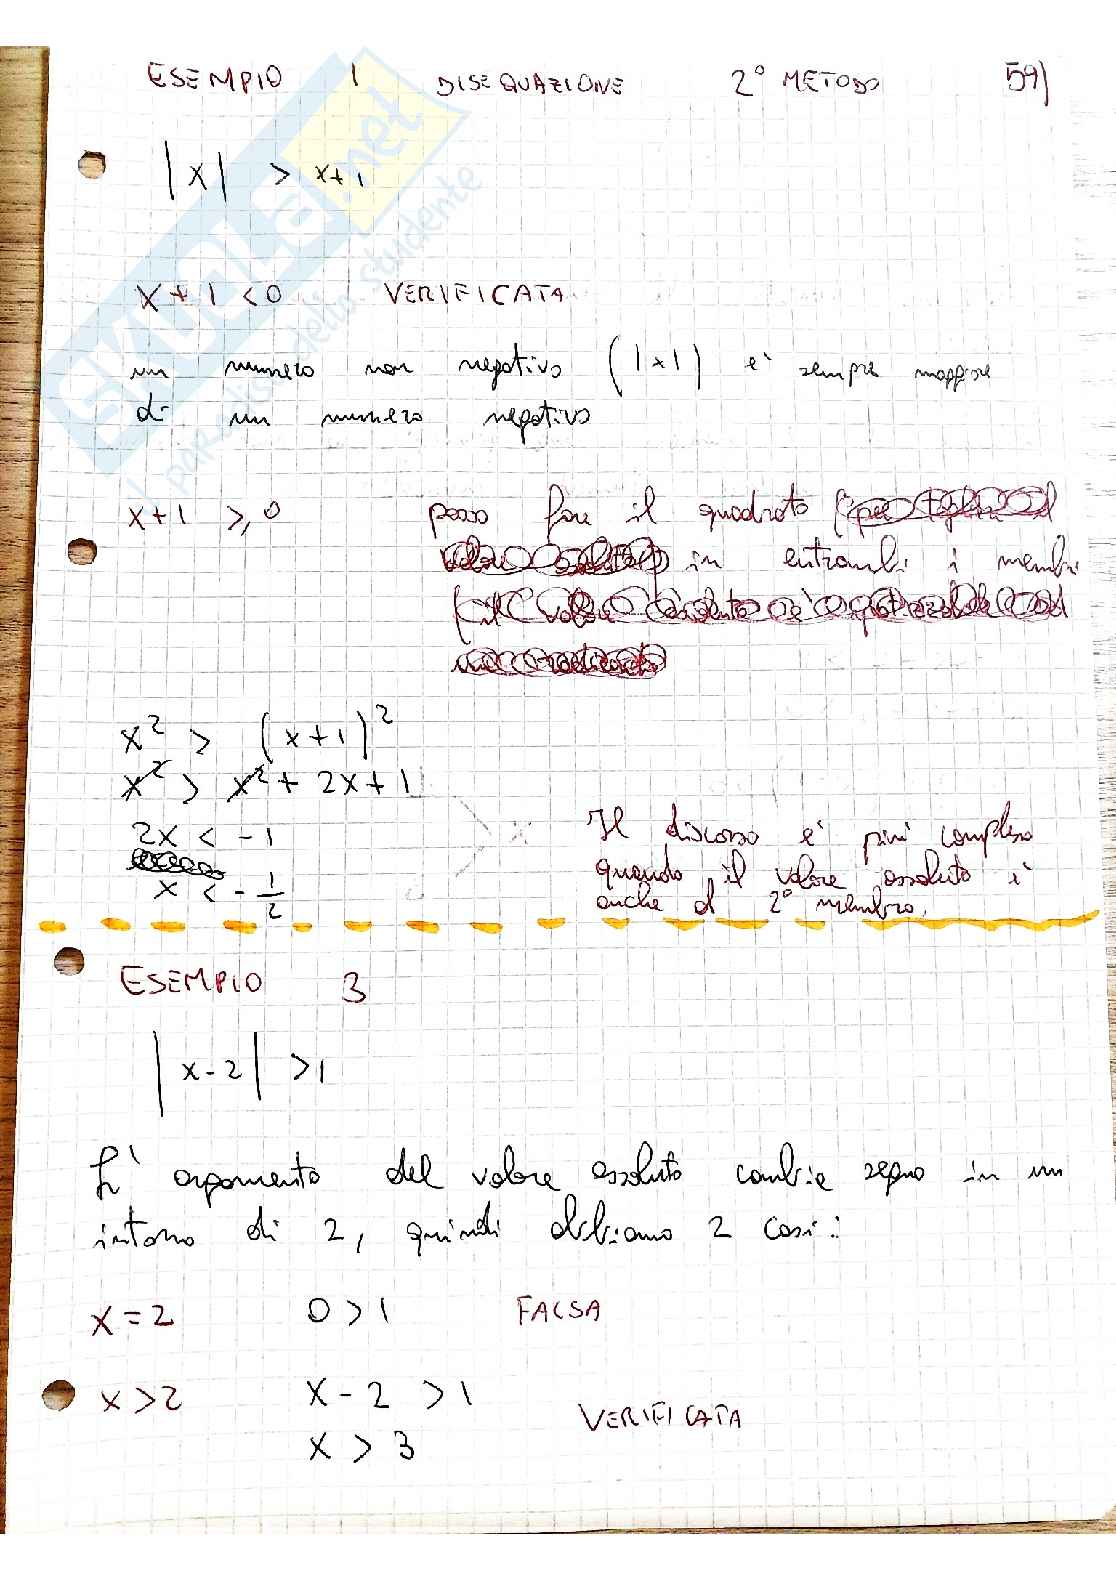 ESEMPIO 1 DISEQUAZIONE 2° METODO 59)
|x| > x+1
x+1 <0 VERIFICATA
un numero non negativo (|x|) e' sempre maggiore
di un numero negativo
x+1 ≥ 0 posso fare il quadrato
in entrambi i membri
x² > (x+1)²
x² > x² + 2x + 1
2x < -1
x < - 1/2
Il discorso e' più complesso
quando il valore assoluto è
anche al 2° membro.
ESEMPIO 3
|x-2| >1
L' argomento del valore assoluto cambia segno in un
intorno di 2, quindi abbiamo 2 casi:
x = 2 0 > 1 FALSA
x > 2 x - 2 > 1 VERIFICATA
x > 3
SKUOLA.net
il paradiso dello studente